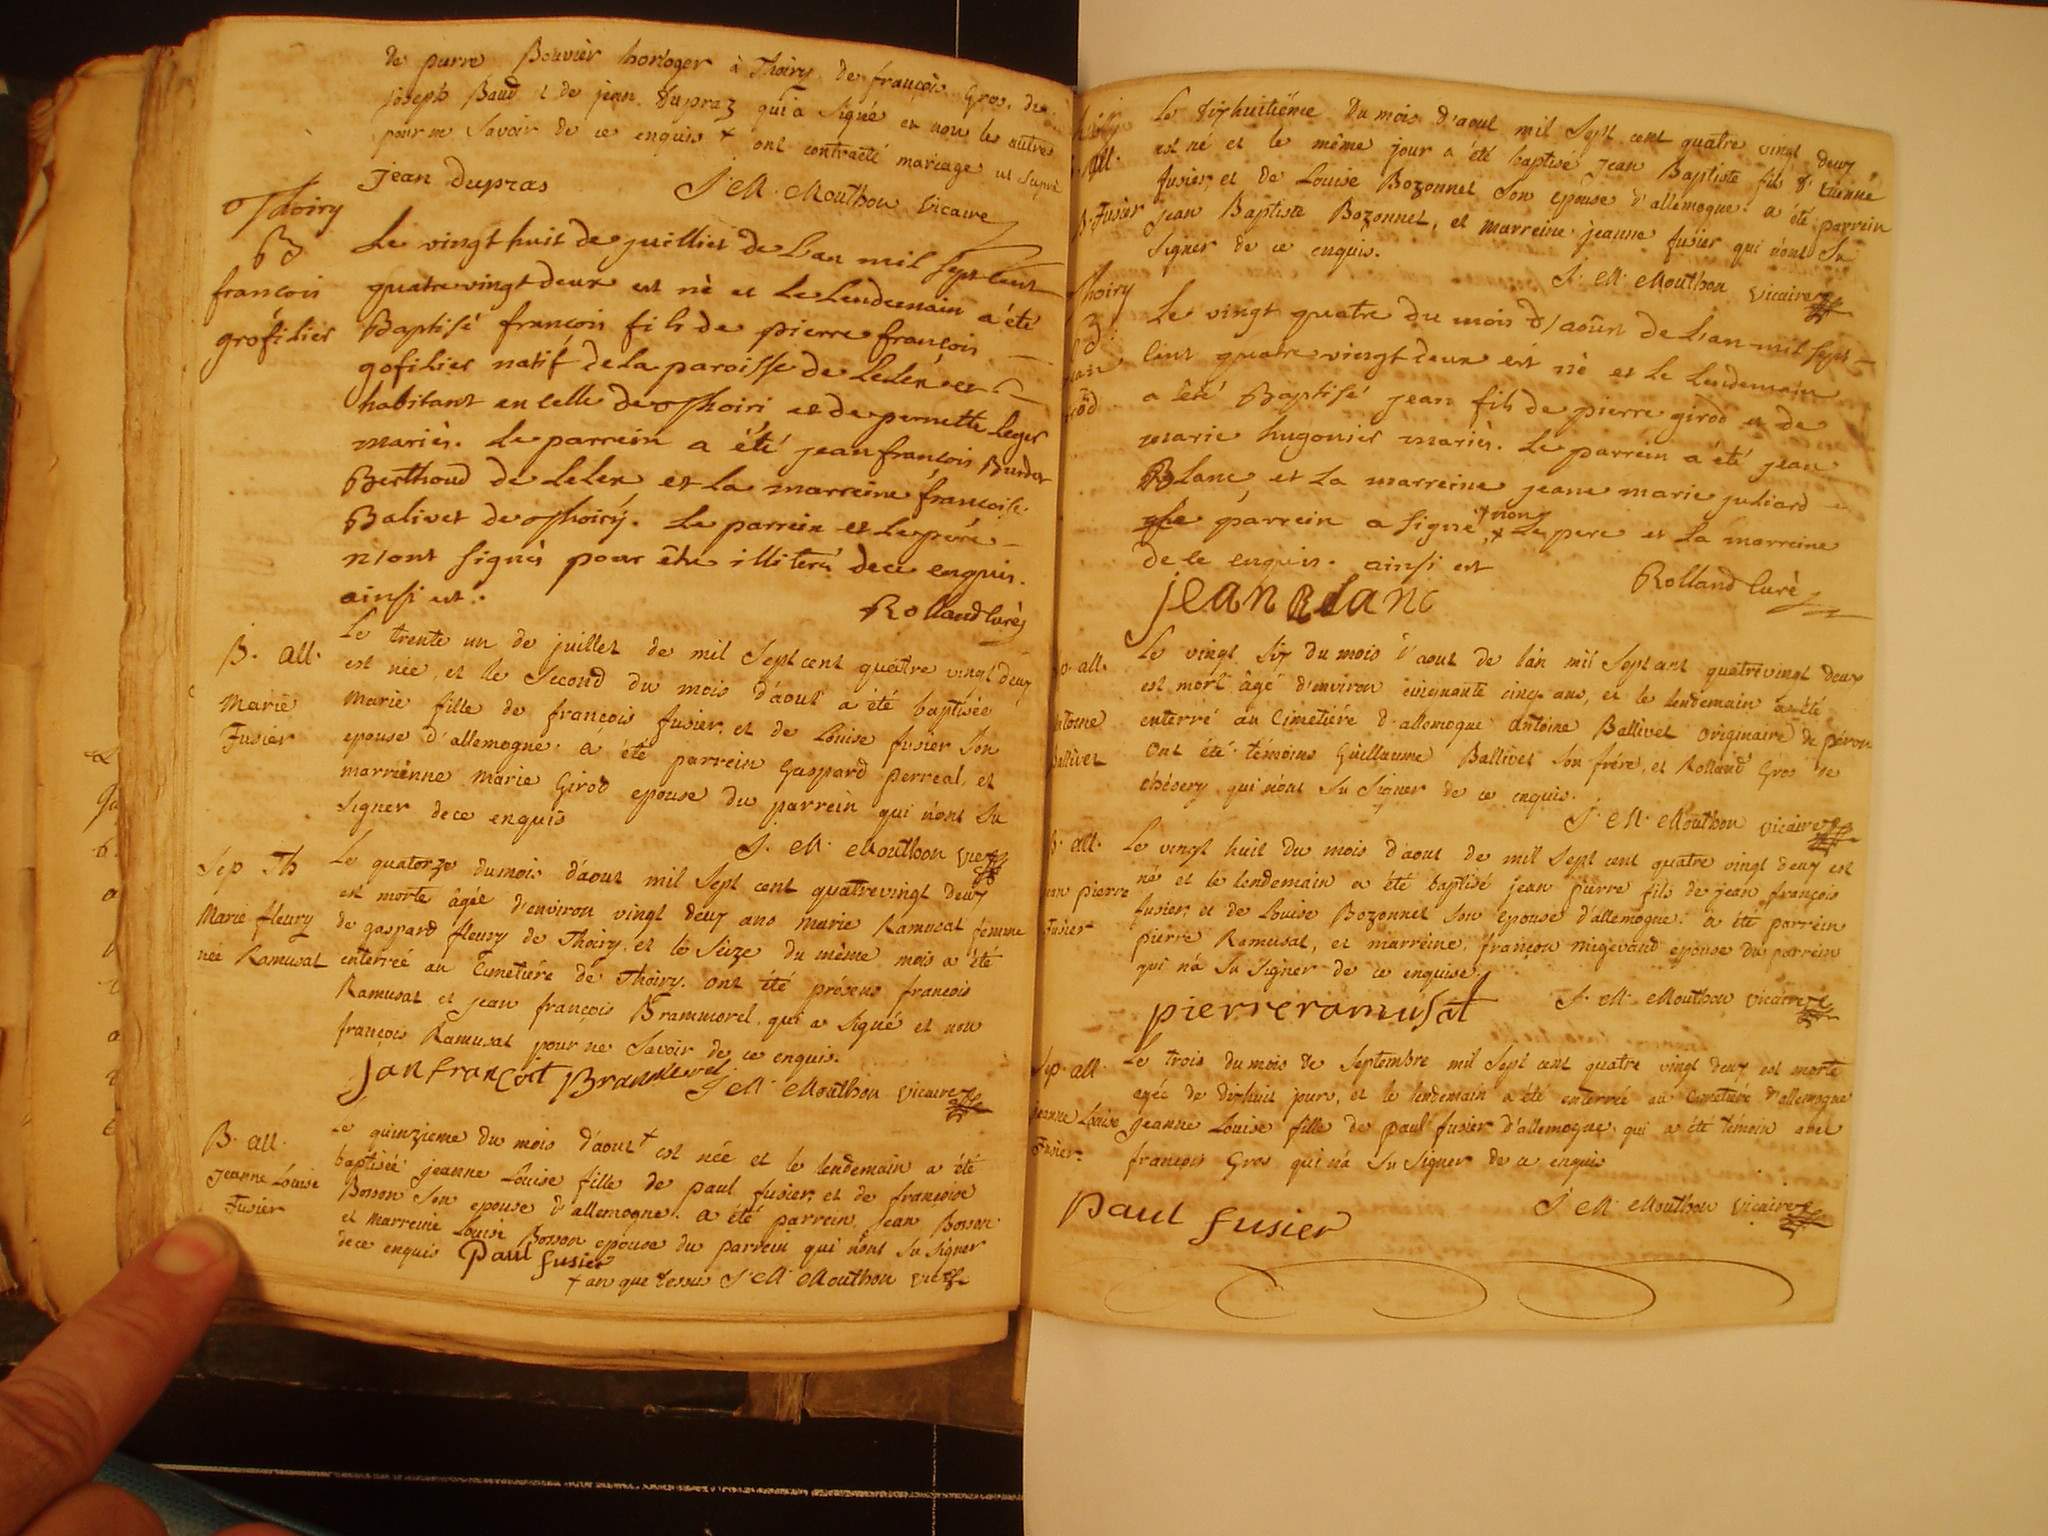 de pierre Bouvier horloger à Thoiry, de françois Gros, de
joseph Baud et de jean Dupraz qui a signé et non les autres
pour ne savoir de ce enquis + ont contracté mariage ut supra
jean dupras J. M. Mouthon vicaire
Thoiry
B
françois
grofilier
Le vingt huit de juilliet de L'an mil sept cent
quatrevingt deux est nè et Le Lendemain a été
Baptisé françois fils de pierre françois
gofilier natif de la paroisse de Lelex et
habitant en celle de Thoiri et de pernette leger
mariès. Le parrein a été jean françois Burdet
Berthoud de Lelex et La marreine françoise
Balivet de Thoiry. Le parrein et Le pére
n'ont signès pour être illiterés de ce enquis.
ainsi est.
Rolland Curè
B. all.
Marie
Fusier
Le trente un de juillet de mil sept cent quatre vingt deux
est née, et le second du mois d'aout a été baptisée
marie fille de françois fusier, et de Louise fusier son
epouse d'allemogne. a été parrein Gaspard perreal, et
marrienne marie Girod epouse du parrein qui n'ont su
signer de ce enquis
J. M. Mouthon vic
Sep Th
Marie fleury
née Ramusat
Le quatorze du mois d'aout mil sept cent quatrevingt deux
est morte âgée d'environ vingt deux ans marie Ramusat femme
de gaspard fleury de Thoiry, et le seize du même mois a été
enterrée au Cimetiére de Thoiry. ont été présens françois
Ramusat et jean françois Brammorel, qui a signé et non
françois Ramusat pour ne savoir de ce enquis.
janfrançoit Brammerel J. M. Mouthon vicaire
B. all.
Jeanne Louise
Fusier
Le quinzieme du mois d'aout + est née et le lendemain a été
baptisée jeanne Louise fille de paul fusier, et de françoise
Bosson son epouse d'allemogne. a été parrein jean Bosson
et marreine Louise Bosson epouse du parrein qui n'ont su signer
de ce enquis Paul fusier
+ an que dessus J. M. Mouthon vic
all.
B. Fusier
Le dixhuitiéme du mois d'aout mil sept cent quatre vingt deux
est né et le même jour a été baptisé jean Baptiste fils d'etienne
fusier, et de Louise Bozonnet son epouse d'allemogne. a été parrein
jean Baptiste Bozonnet, et marreine jeanne fusier qui n'ont su
signer de ce enquis.
J. M. Mouthon vicaire
Thoiry
B
Le vingt quatre du mois d'aoûst de L'an mil sept
cent quatrevingt deux est nè et Le Lendemain
a été Baptisé jean fils de pierre girod et de
marie hugonier mariès. Le parrein a été jean
Blanc et La marreine jeane marie juliard
Le parrein a signé, + non Le pere et La marreine
de ce enquis. ainsi est
Rolland Curè
jean Blanc
all.
antoine
Ballivet
Le vingt six du mois d'aout de l'an mil sept cent quatrevingt deux
est mort âgé d'environ cinquante cinq ans, et le lendemain a été
enterré au Cimetiére d'allemogne antoine Ballivet originaire de péron
ont été témoins Guillaume Ballivet son frére, et Rolland Gros de
chésery qui n'ont su signer de ce enquis.
J. M. Mouthon vicaire
B. all.
jean pierre
Fusier
Le vingt huit du mois d'aout de mil sept cent quatre vingt deux est
né et le lendemain a été baptisé jean pierre fils de jean françois
fusier, et de Louise Bozonnet son epouse d'allemogne. a été parrein
pierre Ramusat, et marreine, françoise migevand epouse du parrein
qui n'a su signer de ce enquise
pierre ramusat
J. M. Mouthon vicaire
Sep. all.
jeanne Louise
Fusier
Le trois du mois de septembre mil sept cent quatre vingt deux est morte
agée de dixhuit jours, et le lendemain a été enterrée au Cimetiére d'allemogne
jeanne Louise fille de paul fusier d'allemogne, qui a été témoin avec
françois Gros qui n'a su signer de ce enquis
J. M. Mouthon vicaire
Paul fusier